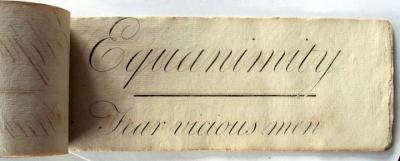 Equanimity
Fear vicious men